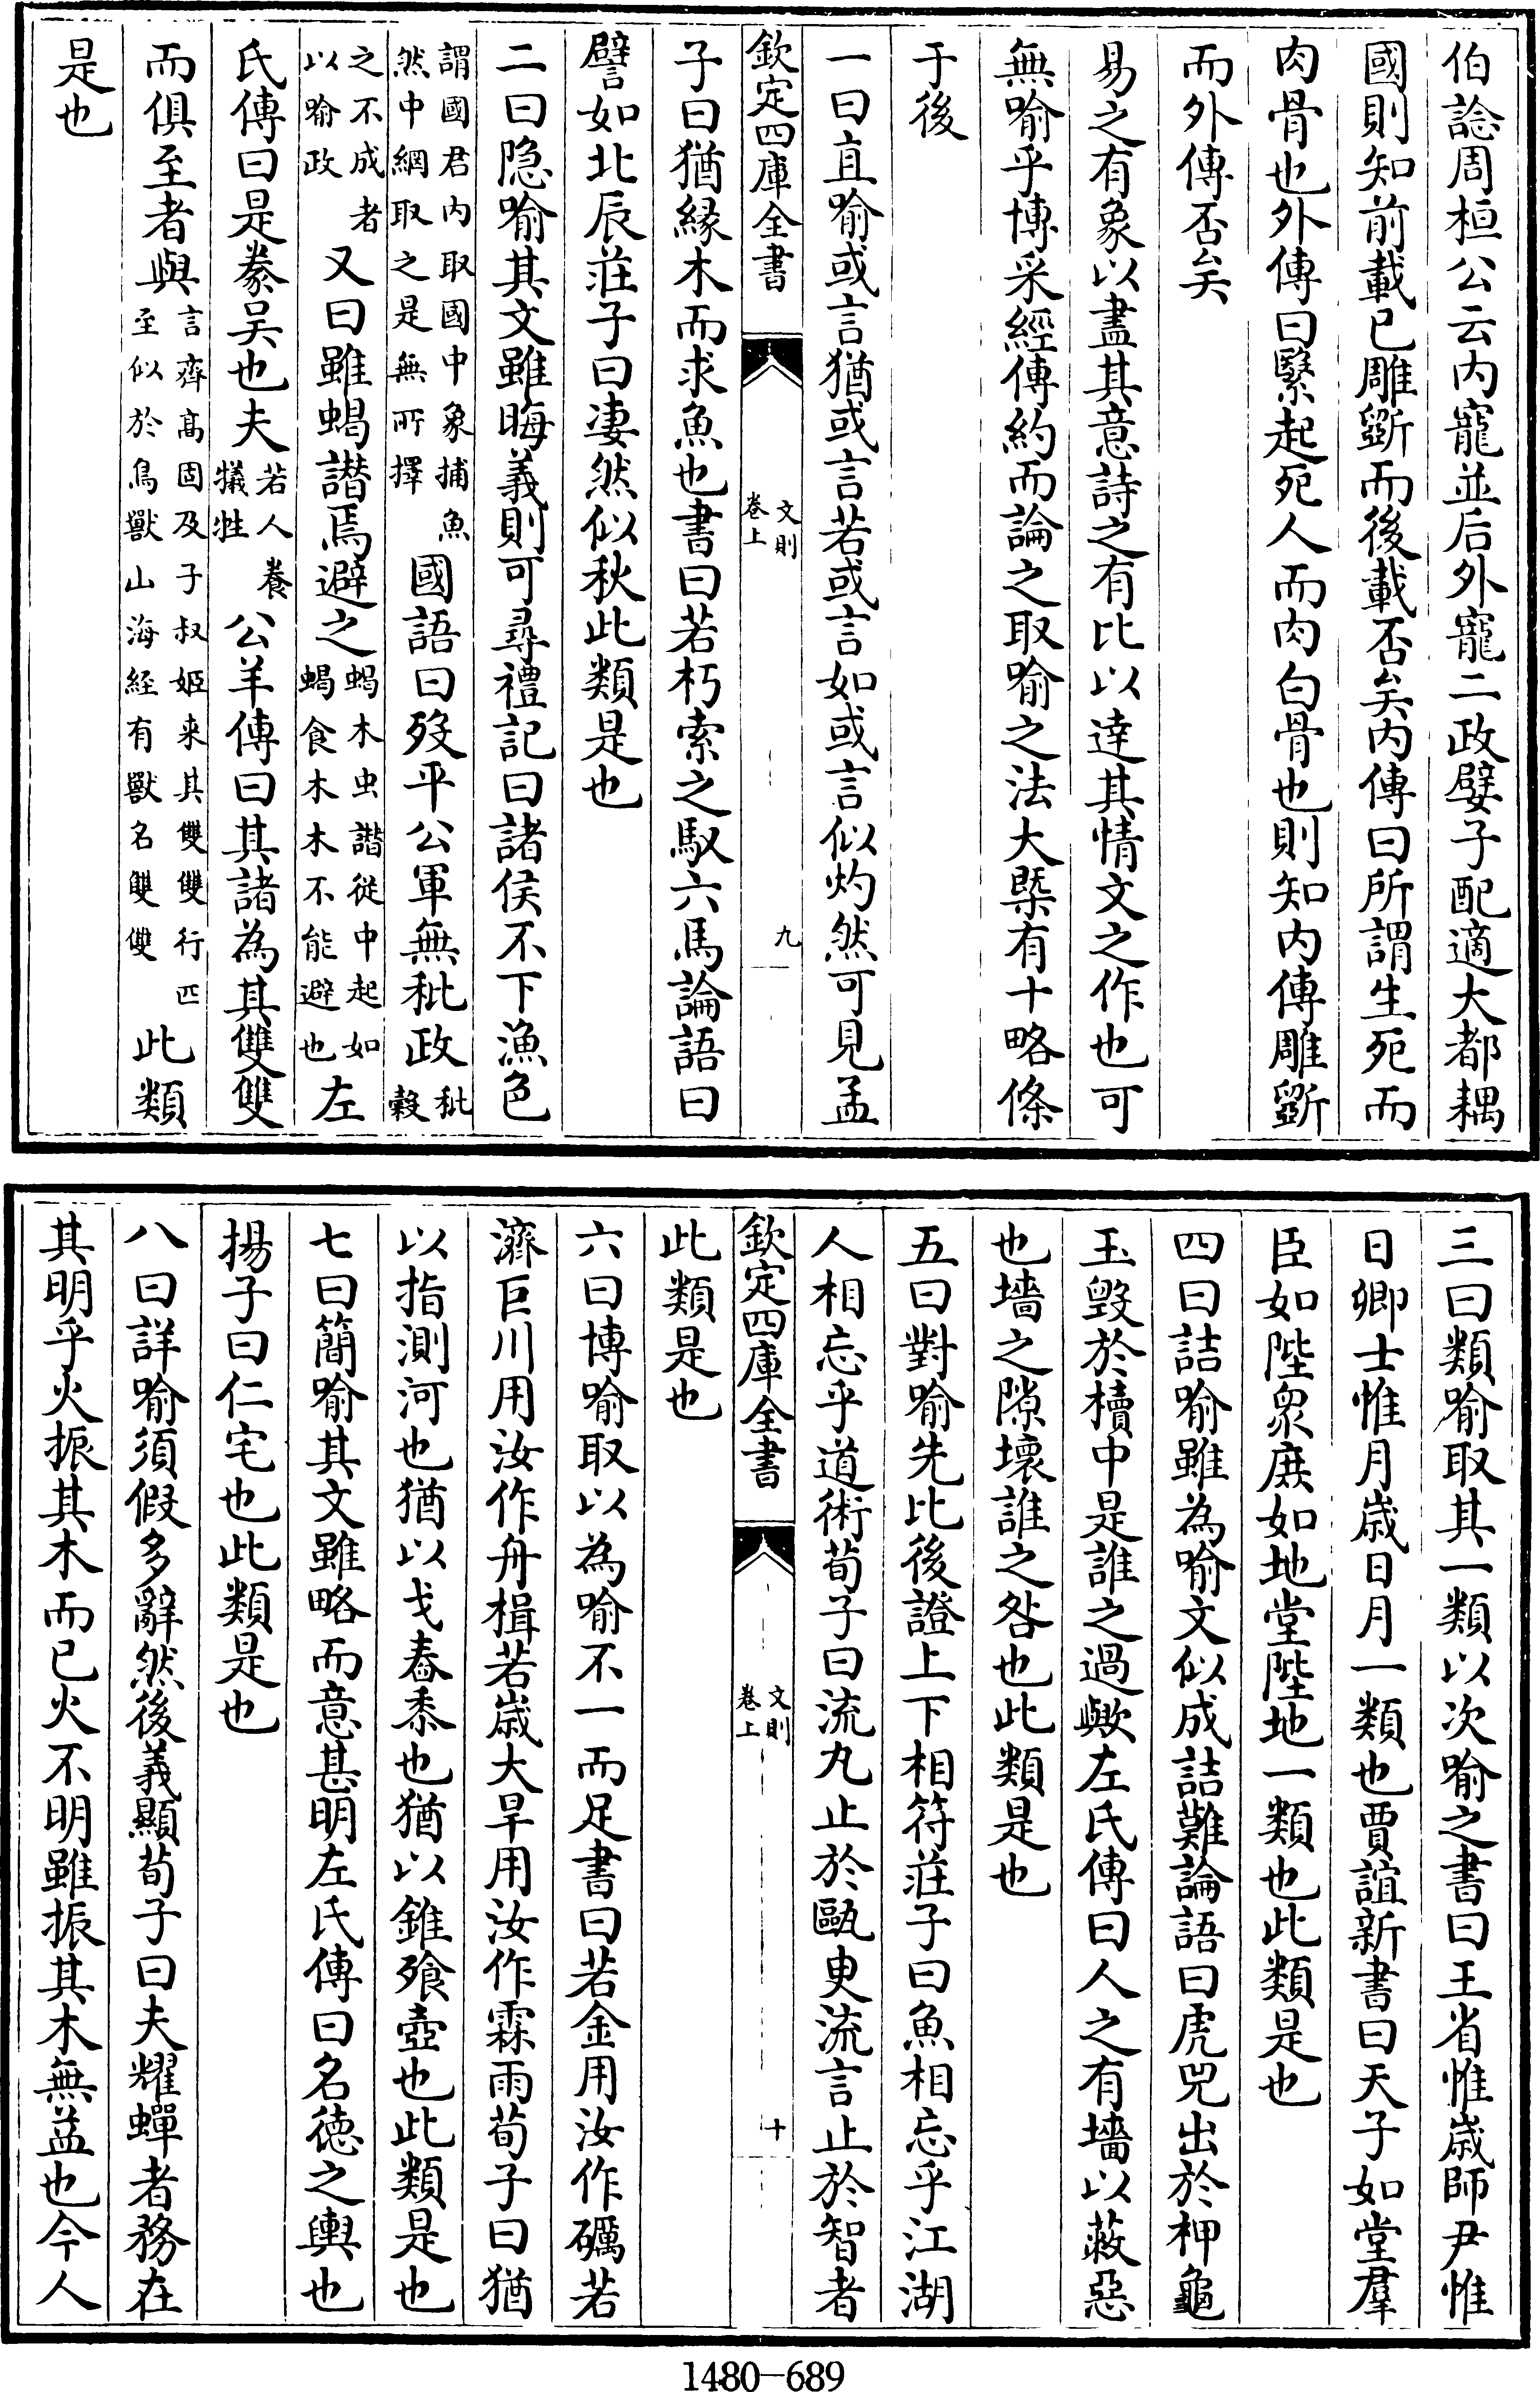 伯諗周桓公云内寵並后外寵二政嬖子配適大都耦
國則知前載已雕斵而後載否矣内傳曰所謂生死而
肉骨也外傳曰繄起死人而肉白骨也則知内傳雕斵
而外傳否矣
易之有象以盡其意詩之有比以達其情文之作也可
無喻乎博采經傳約而論之取喻之法大槩有十略條
于後
一曰直喻或言猶或言若或言如或言似灼然可見孟
欽定四庫全書
文則
卷上
九
子曰猶緣木而求魚也書曰若朽索之馭六馬論語曰
譬如北辰莊子曰凄然似秋此類是也
二曰隐喻其文雖晦義則可尋禮記曰諸侯不下漁色
謂國君内取國中象捕魚
然中網取之是無所擇
國語曰殁平公軍無秕政
秕
穀
之不成者
以喻政
又曰雖蝎譖焉避之
蝎木虫譖從中起如
蝎食木木不能避也
左
氏傳曰是豢吴也夫
若人養
犠牲
公羊傳曰其諸為其雙雙
而俱至者與
言齊髙固及子叔姬来其雙雙行匹
至似於鳥獸山海経有獸名雙雙
此類
是也
三曰類喻取其一類以次喻之書曰王省惟歲師尹惟
日卿士惟月歲日月一類也賈誼新書曰天子如堂羣
臣如陛衆庶如地堂陛地一類也此類是也
四曰詰喻雖為喻文似成詰難論語曰虎兕出於柙龜
玉毁於櫝中是誰之過歟左氏傳曰人之有墻以蔽惡
也墻之隙壞誰之咎也此類是也
五曰對喻先比後證上下相符莊子曰魚相忘乎江湖
人相忘乎道術荀子曰流丸止於甌臾流言止於智者
欽定四庫全書
文則
卷上
十
此類是也
六曰博喻取以為喻不一而足書曰若金用汝作礪若
濟巨川用汝作舟楫若歲大旱用汝作霖雨荀子曰猶
以指測河也猶以戈舂黍也猶以錐飱壺也此類是也
七曰簡喻其文雖略而意甚明左氏傳曰名德之輿也
揚子曰仁宅也此類是也
八曰詳喻須假多辭然後義顯荀子曰夫耀蟬者務在
其明乎火振其木而已火不明雖振其木無益也今人
1480-689